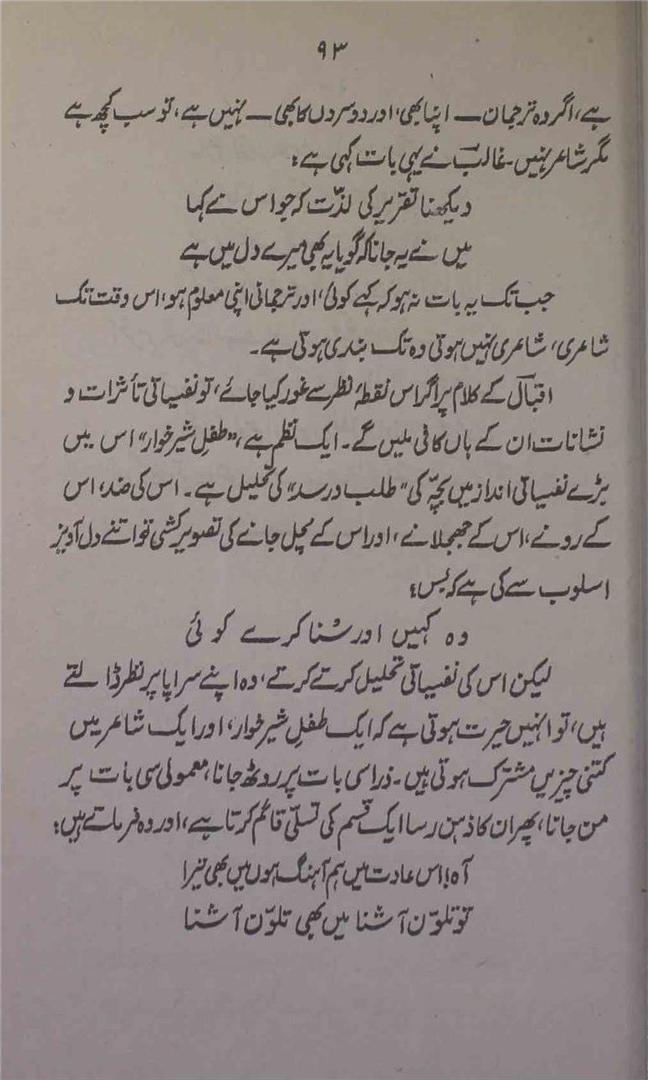 ۹۳
ہے، اگر وہ ترجمان — اپنا بھی، اور دوسروں کا بھی — نہیں ہے، تو سب کچھ ہے
مگر شاعر نہیں۔ غالبؔ نے یہی بات کہی ہے:
دیکھنا تقریر کی لذّت کہ جو اس نے کہا
میں نے یہ جانا کہ گویا یہ بھی میرے دل میں ہے
جب تک یہ بات نہ ہو کہ کہے کوئی، اور ترجمانی اپنی معلوم ہو، اس وقت تک
شاعری، شاعری نہیں ہوتی وہ تک بندی ہوتی ہے۔
اقبالؔ کے کلام پر اگر اس نقطۂ نظر سے غور کیا جائے، تو نفسیاتی تأثرات و
نشانات ان کے ہاں کافی ملیں گے۔ ایک نظم ہے، "طفلِ شیر خوار" اس میں
بڑے نفسیاتی انداز میں بچّہ کی "طلب و رسد" کی تحلیل ہے۔ اس کی ضد، اس
کے رونے، اس کے جھجلانے، اور اس کے مچل جانے کی تصویر کشی تو اتنے دل آویز
اسلوب سے کی ہے کہ بس؛
وہ کہیں اور سُنا کرے کوئی
لیکن اس کی نفسیاتی تحلیل کرتے کرتے، وہ اپنے سراپا پر نظر ڈالتے
ہیں، تو انہیں حیرت ہوتی ہے کہ ایک طفلِ شیر خوار، اور ایک شاعر میں
کتنی چیزیں مشترک ہوتی ہیں۔ ذرا سی بات پر روٹھ جانا، معمولی سی بات پر
من جانا، پھر ان کا ذہن رسا ایک قسم کی تسلّی قائم کرتا ہے، اور وہ فرماتے ہیں:
آہ! اس عادت میں ہم آہنگ ہوں میں بھی تیرا
تو تلوّن آشنا میں بھی تلوّن آشنا